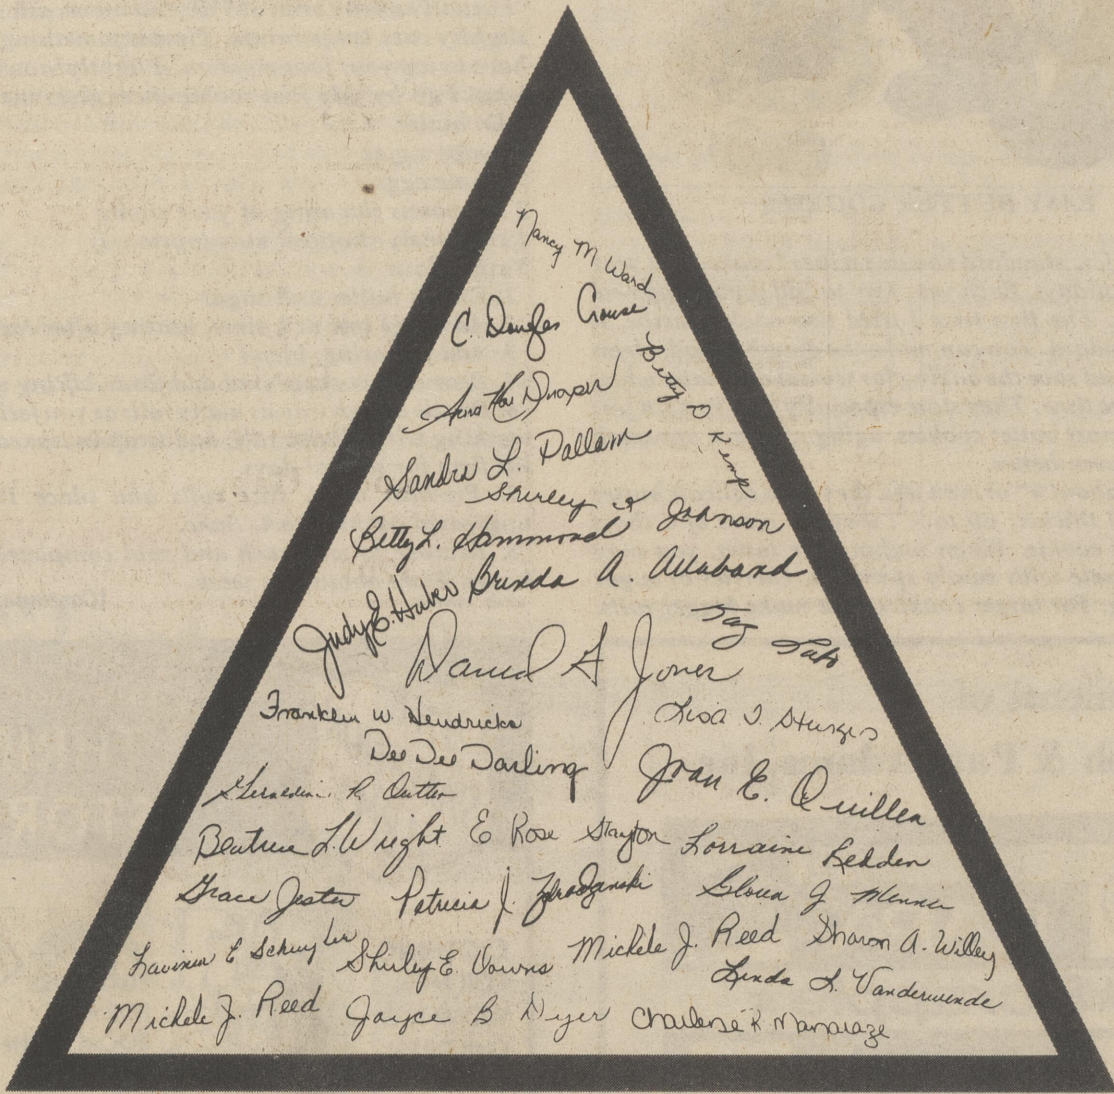 Nancy M Ward
C. Douglas Crouse
Betty D Kemp
Draper
Sandra L. Pallam
Shirley Johnson
Betty L. Hammond
Brenda A. Allaband
Judy E. Huber
Kay
David G Jones
Franklin W. Hendricks
Lisa D. Sturges
Dee Dee Darling
Joan E. Quillen
Geraldine R Outten
Beatrice L. Wright E Rose Stayton Lorraine Redden
Grace Jester Patricia J. Gloria J
Lavinia E Schuyler Shirley E. Downs Michele J. Reed Sharon A. Willey
Linda L. Vanderwende
Michele J. Reed Joyce B Dyer Charlense K